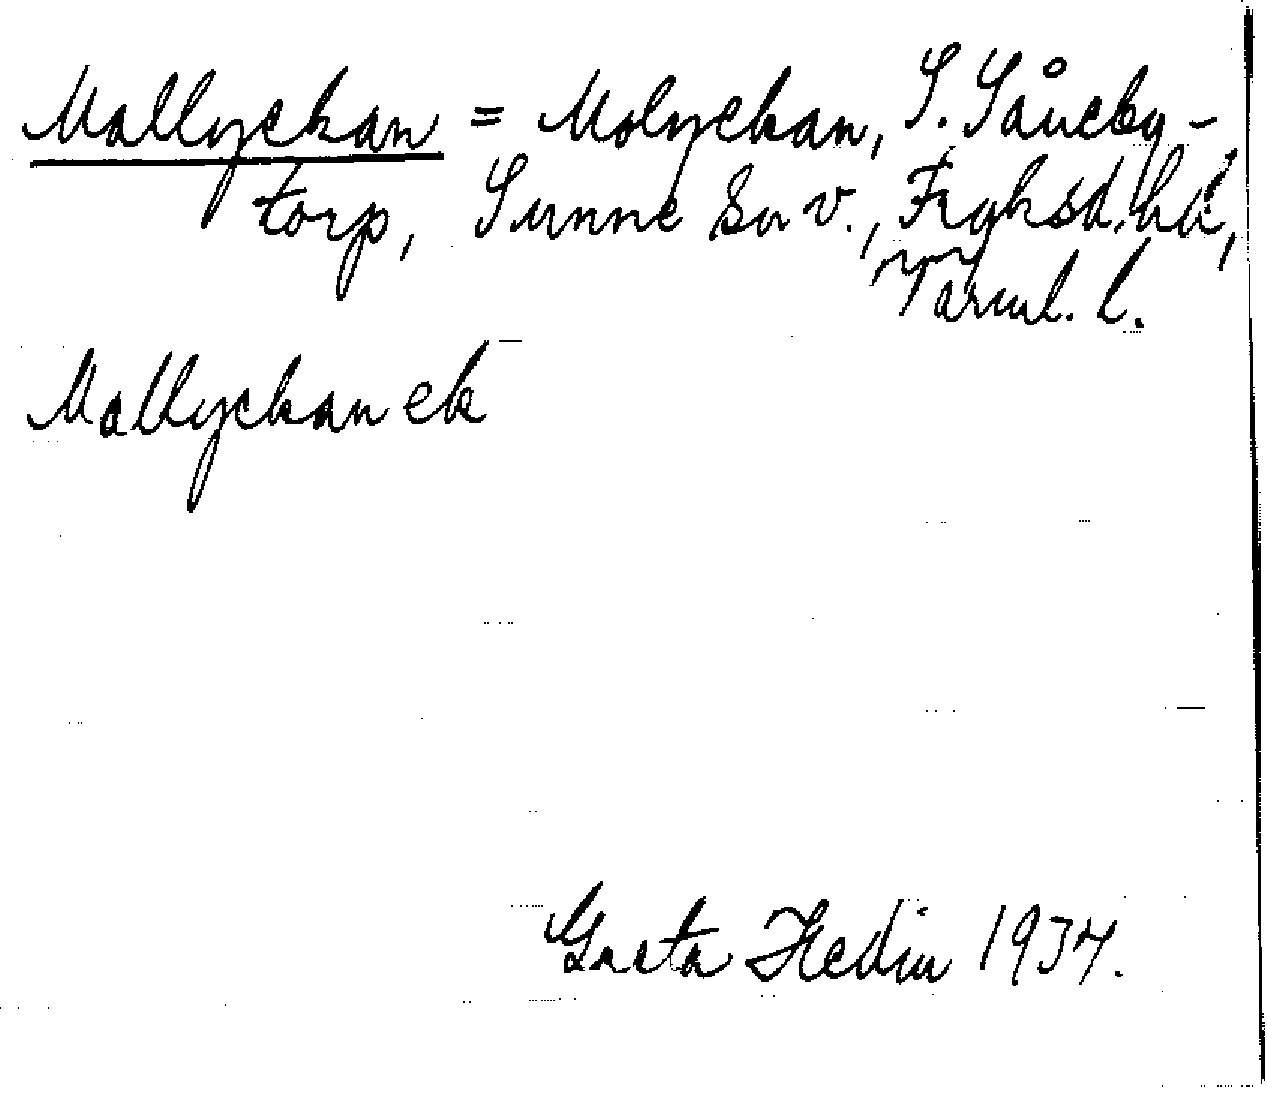 Mallyckan = Molyckan, S. Såneby-
torp, Sunne sn v., Fryksd. hd,
Värml. l.
Mallyckan ek
Greta Hedin 1934.